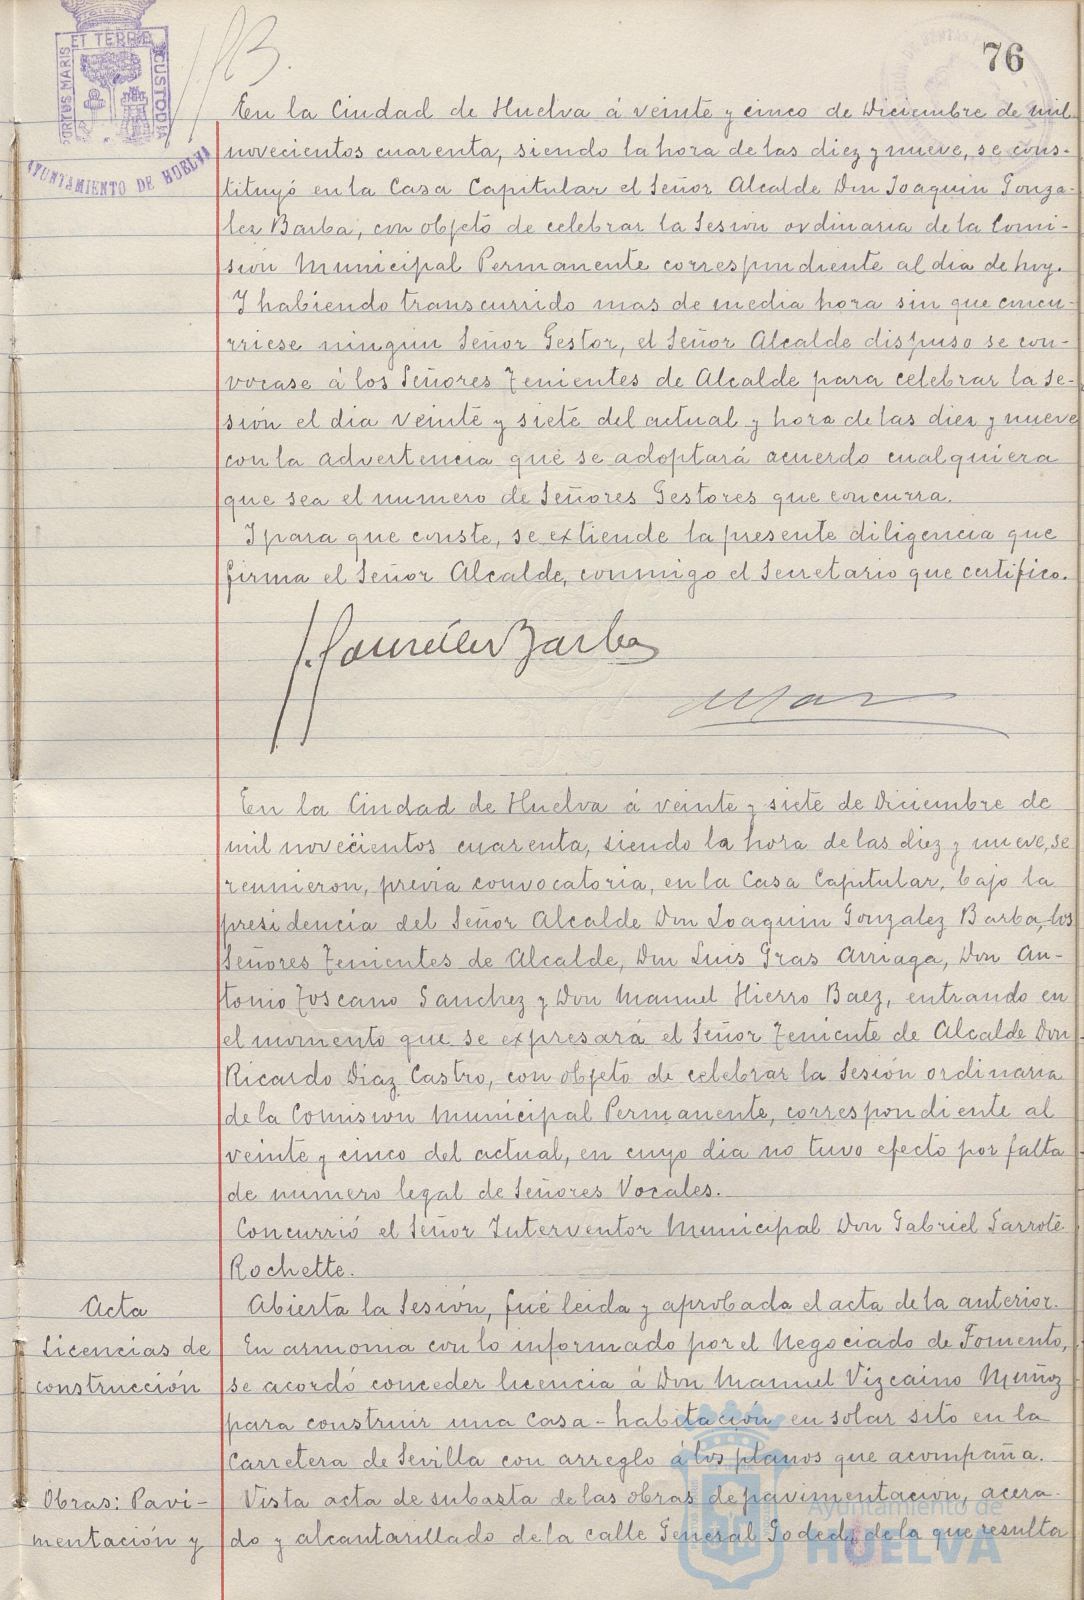 76
PORTUS MARIS ET TERRÆ CUSTODIA
AYUNTAMIENTO DE HUELVA
En la Ciudad de Huelva á veinte y cinco de Diciembre de mil
novecientos cuarenta, siendo la hora de las diez y nueve, se cons-
tituyó en la Casa Capitular el Señor Alcalde Don Joaquin Gonza-
lez Barba, con objeto de celebrar la Sesión ordinaria de la Comi-
sión Municipal Permanente correspondiente al dia de hoy.
Y habiendo transcurrido mas de media hora sin que concu-
rriese ningun Señor Gestor, el Señor Alcalde dispuso se con-
vocase á los Señores Tenientes de Alcalde para celebrar la Se-
sión el dia veinte y siete del actual y hora de las diez y nueve
con la advertencia que se adoptará acuerdo cualquiera
que sea el numero de Señores Gestores que concurra.
Y para que conste, se extiende la presente diligencia que
firma el Señor Alcalde, conmigo el Secretario que certifico.
J. González Barba
En la Ciudad de Huelva á veinte y siete de Diciembre de
mil novecientos cuarenta, siendo la hora de las diez y nueve, se
reunieron, previa convocatoria, en la Casa Capitular, bajo la
presidencia del Señor Alcalde Don Joaquin Gonzalez Barba, los
Señores Tenientes de Alcalde, Don Luis Gras Arriaga, Don An-
tonio Toscano Sanchez y Don Manuel Hierro Baez, entrando en
el momento que se expresará el Señor Teniente de Alcalde Don
Ricardo Diaz Castro, con objeto de celebrar la Sesión ordinaria
de la Comision Municipal Permanente, correspondiente al
veinte y cinco del actual, en cuyo dia no tuvo efecto por falta
de numero legal de Señores Vocales.
Concurrió el Señor Interventor Municipal Don Gabriel Garrote
Rochette.
Acta
Abierta la Sesión, fué leida y aprobada el acta de la anterior.
Licencias de
construcción
En armonia con lo informado por el Negociado de Fomento,
se acordó conceder licencia á Don Manuel Vizcaino Muñoz
para construir una casa-habitación en solar sito en la
Carretera de Sevilla con arreglo á los planos que acompaña.
Obras: Pavi-
mentación y
Vista acta de subasta de las obras de pavimentación, acera-
do y alcantarillado de la calle General Goded, de la que resulta
Ayuntamiento de
HUELVA